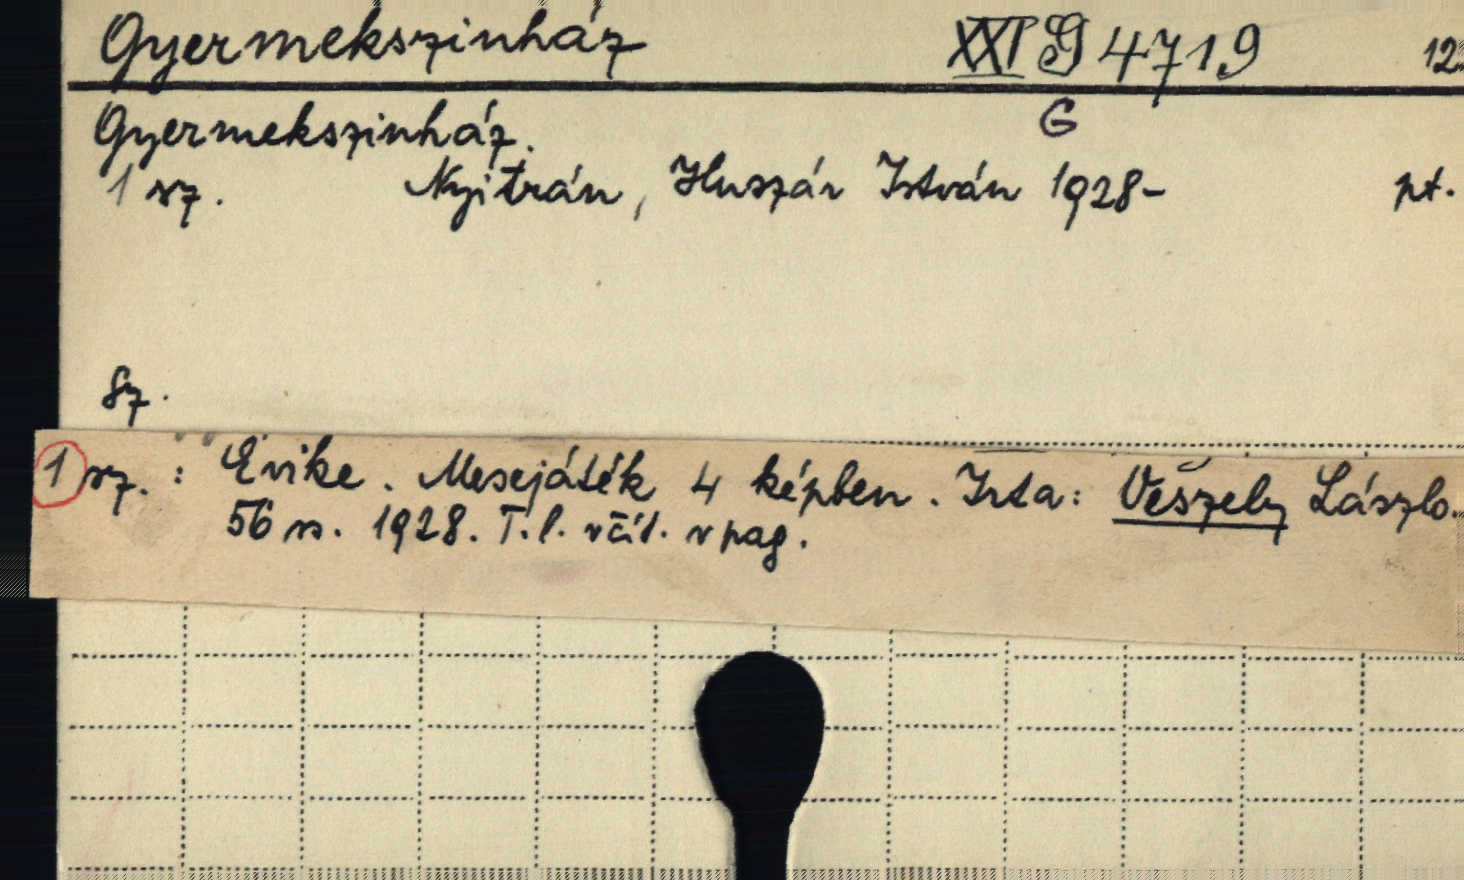 Gyermekszinház XXI G 4719 12
G
Gyermekszinház.
1 sz. Nyitrán, Huszár István 1928- pt.
Sz.
1 sz. : Evike. Mesejáték 4 képben. Irta: Veszely László.
56 s. 1928. T. l. včít. v pag.